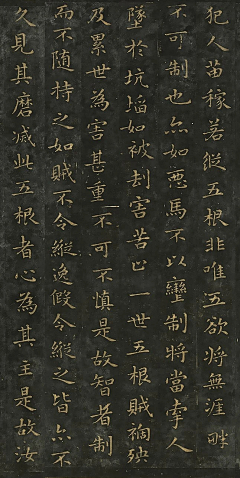 犯人苗稼若縱五根非唯五欲將無涯畔
不可制也亦如惡馬不以轡制將當牽人
墜於坑埳如被刦害苦止一世五根賊禍殃
及累世為害甚重不可不慎是故智者制
而不隨持之如賊不令縱逸假令縱之皆亦不
久見其磨滅此五根者心為其主是故汝